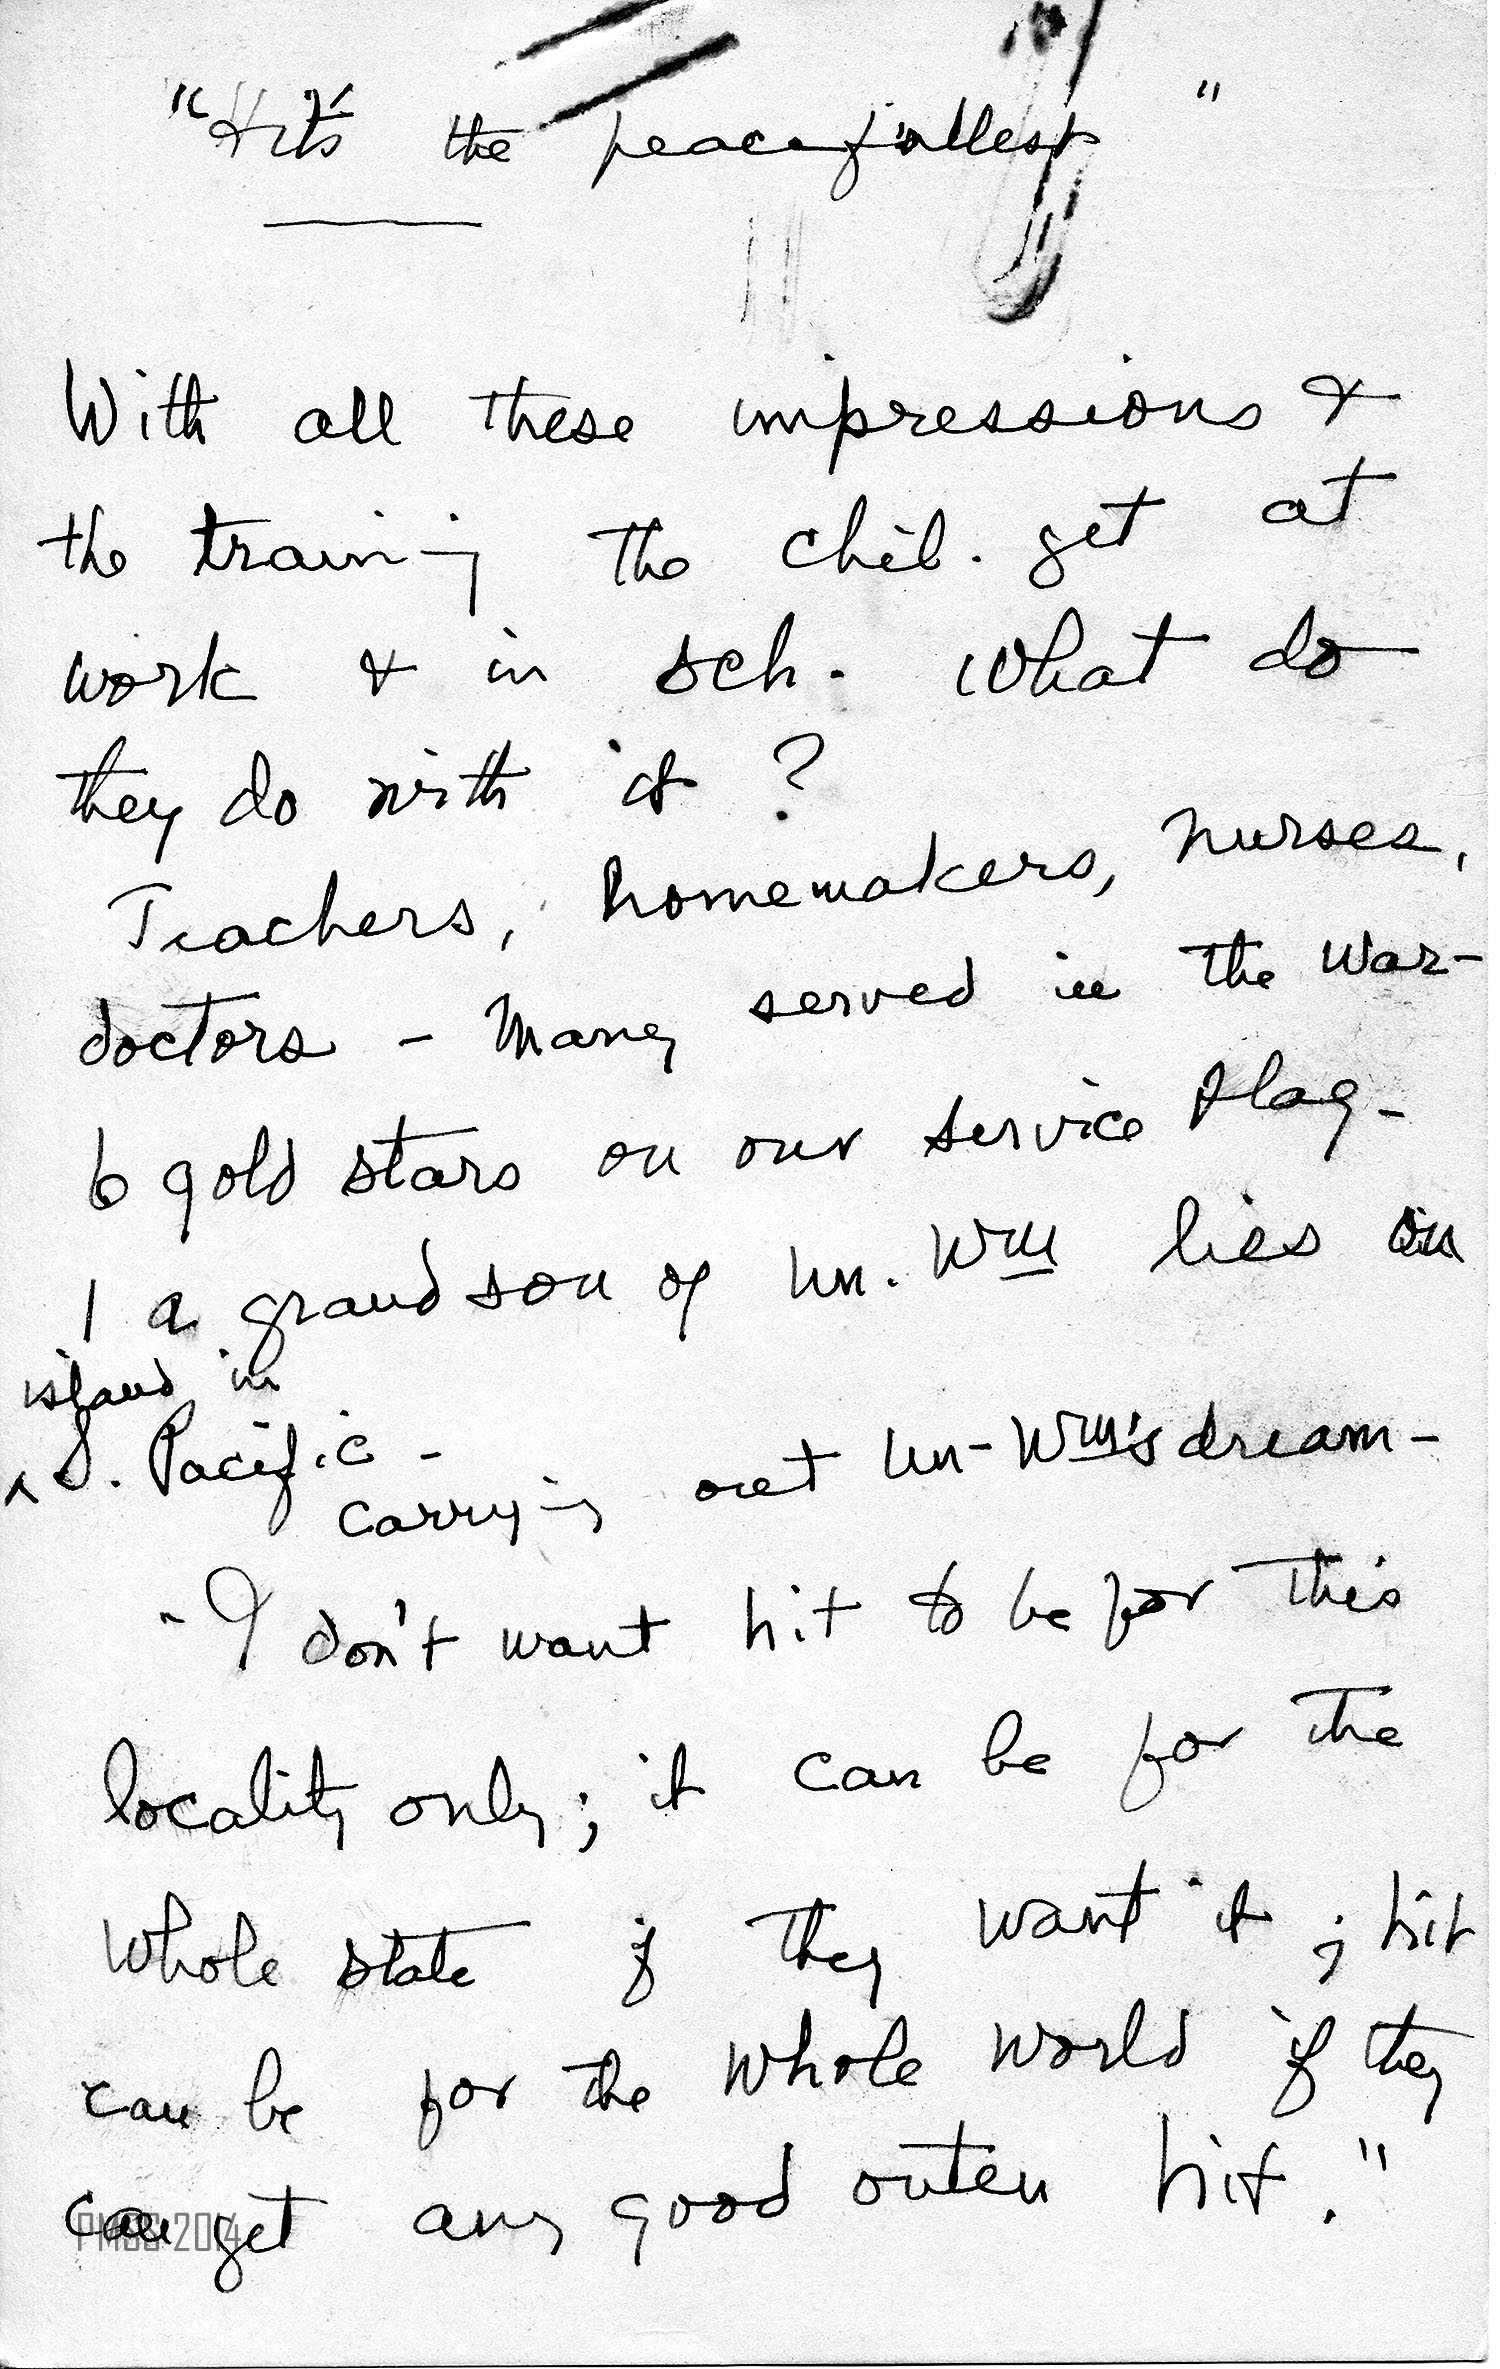 "Hit's the peacefullest"
With all these impressions &
the training the chil. get at
work & in sch. What do
they do with it?
Teachers, homemakers, nurses,
doctors - Many served in the war-
6 gold stars on our service flag-
1 a grandson of Un. Wm lies on
island in
^ S. Pacific -
carrying out Un-Wm's dream-
"I don't want hit to be for this
locality only; it can be for the
whole state if they want it; hit
can be for the whole world if they
can get any good outen hit."
PMSS 2014